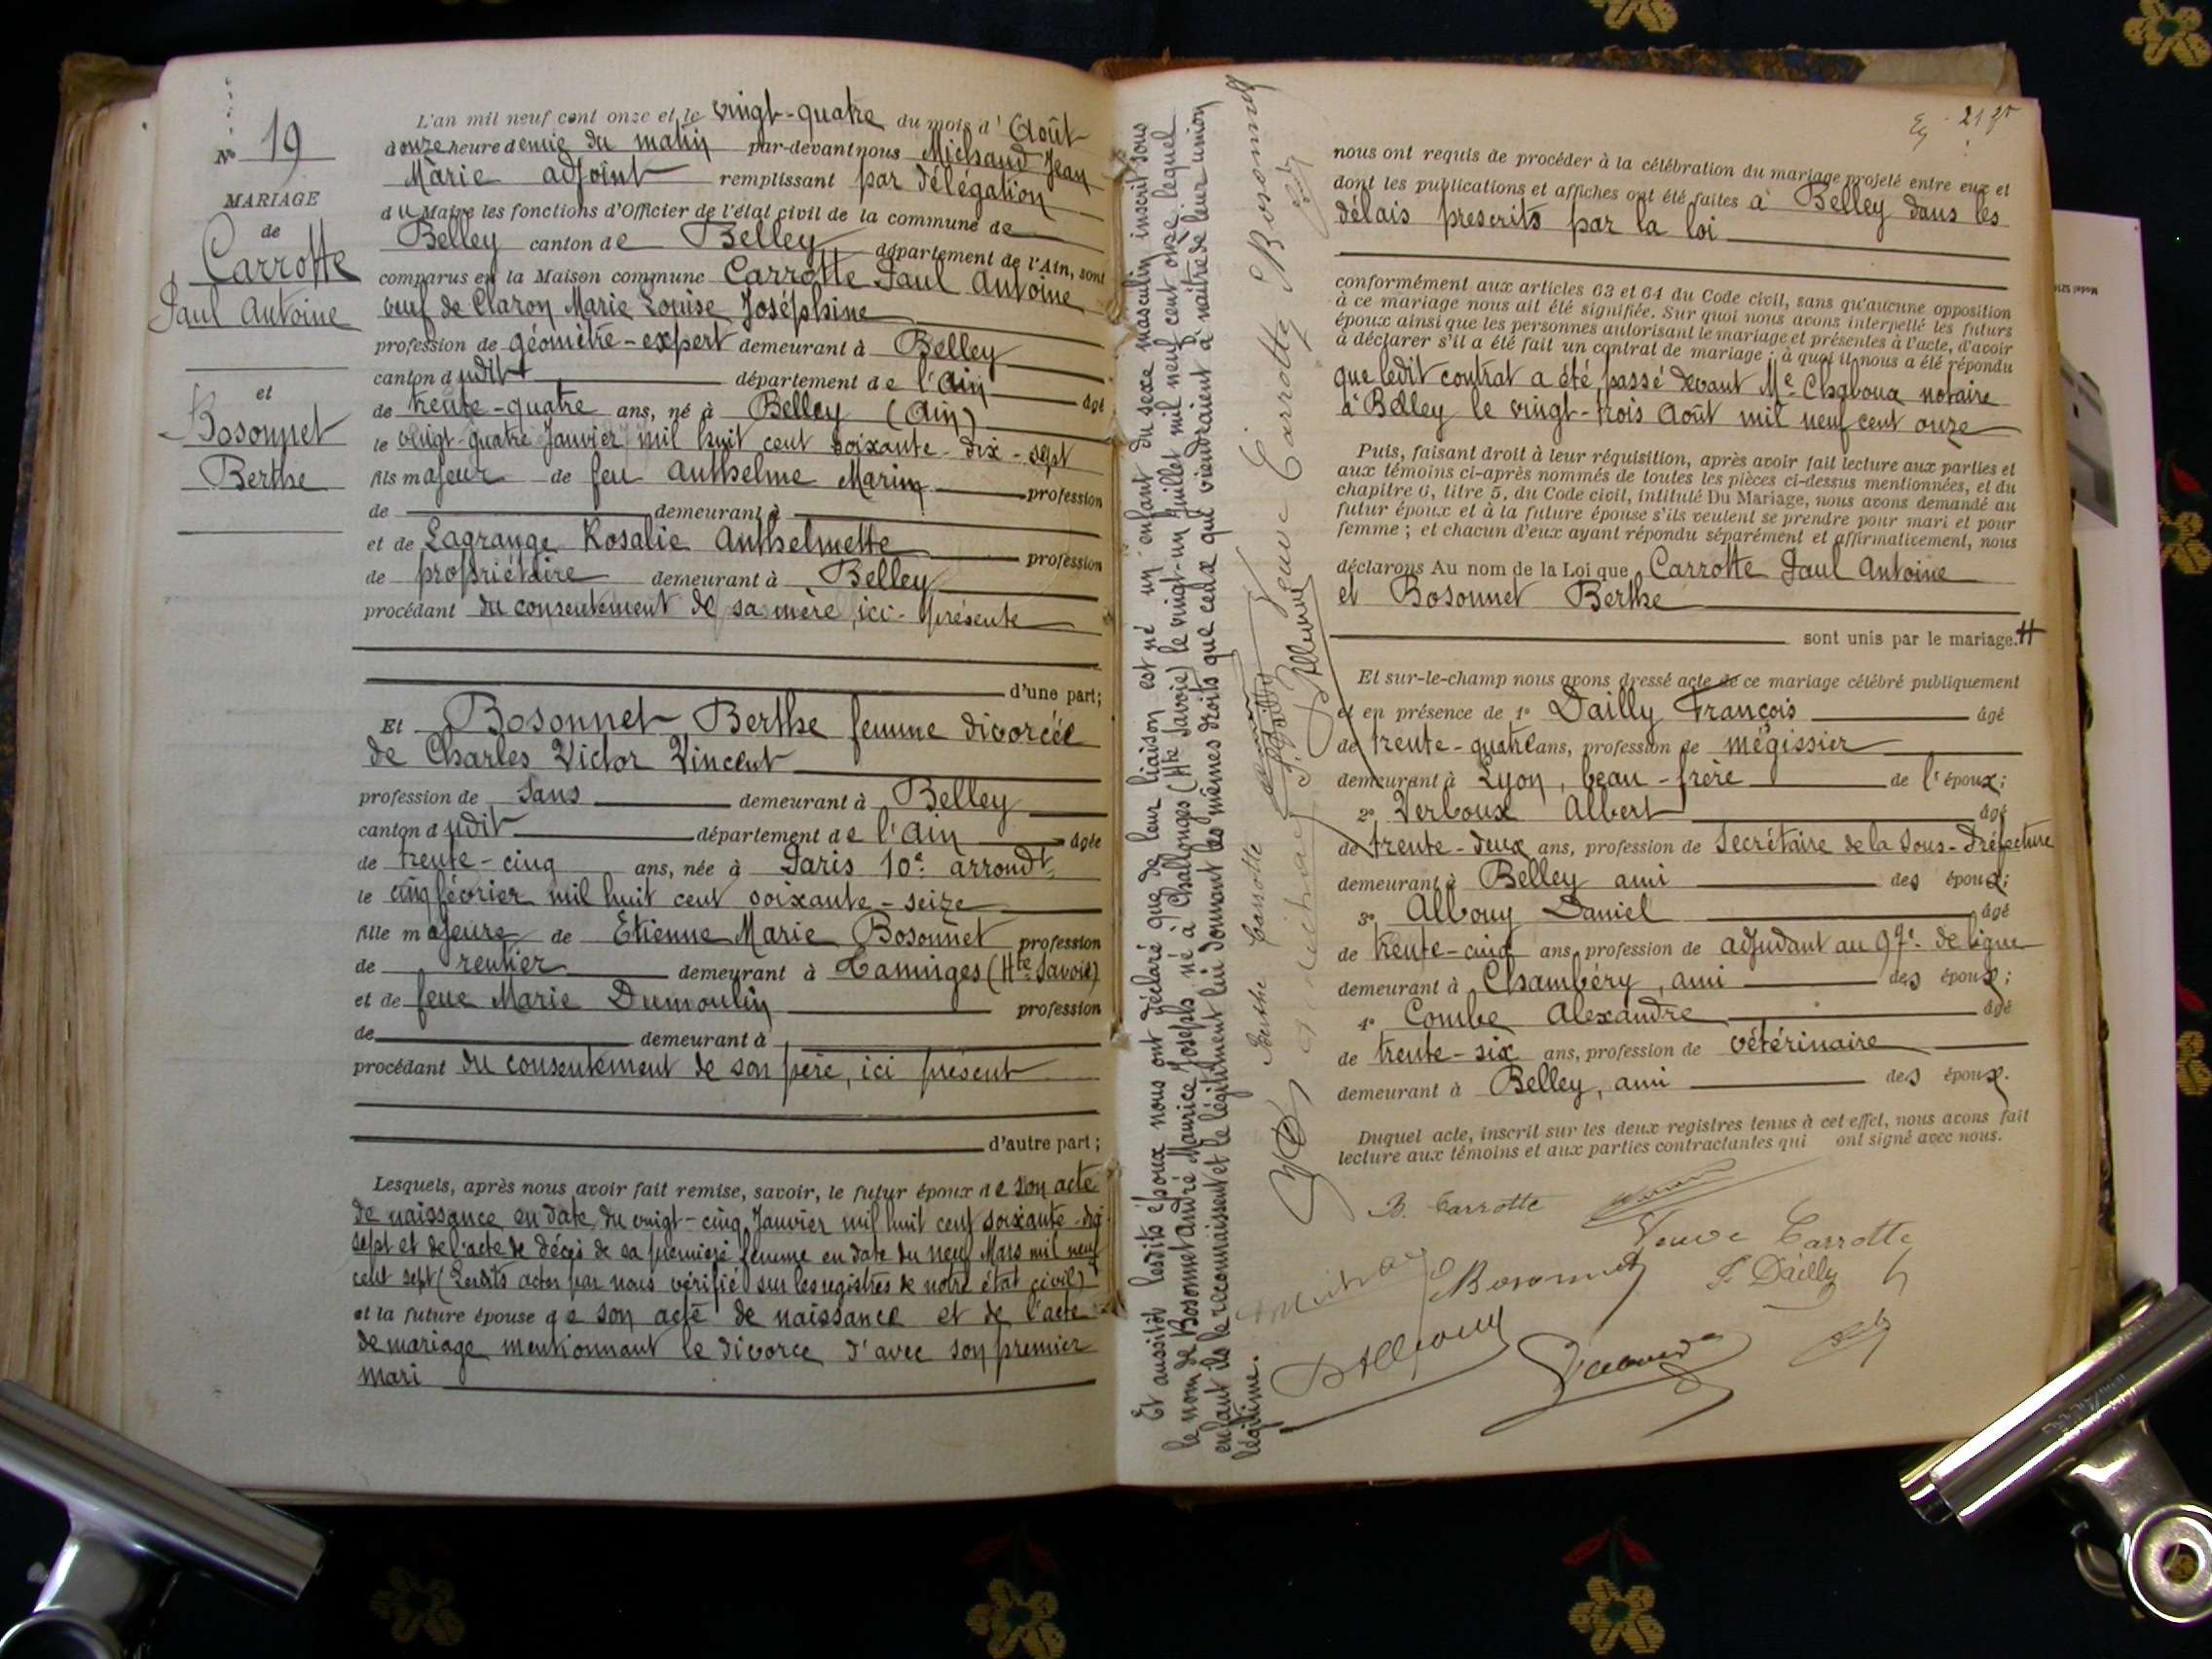 N° 19
MARIAGE
de
Carrotte
Paul Antoine
et
Bosonnet
Berthe
L'an mil neuf cent onze et le vingt-quatre du mois d'Août
à onze heure demie du matin par-devant nous Michaud Jean
Marie adjoint remplissant par délégation
du Maire les fonctions d'Officier de l'état civil de la commune de
Belley canton de Belley département de l'Ain, sont
comparus en la Maison commune Carrotte Paul Antoine
veuf de Claron Marie Louise Joséphine
profession de géomètre-expert demeurant à Belley
canton dudit département de l'Ain âgé
de trente-quatre ans, né à Belley (Ain)
le vingt-quatre Janvier mil huit cent soixante-dix-sept
fils majeur de feu Anthelme Marin profession
de demeurant à
et de Lagrange Rosalie Anthelmette profession
de propriétaire demeurant à Belley
procédant du consentement de sa mère, ici-présente
d'une part;
Et Bosonnet Berthe femme divorcée
de Charles Victor Vincent
profession de Sans demeurant à Belley
canton dudit département de l'Ain âgée
de trente-cinq ans, née à Paris 10e arrondt
le cinq février mil huit cent soixante-seize
fille majeure de Etienne Marie Bosonnet profession
de rentier demeurant à Taninges (Hte Savoie)
et de feue Marie Dumoulin profession
de demeurant à
procédant du consentement de son père, ici présent
d'autre part;
Lesquels, après nous avoir fait remise, savoir, le futur époux de son acte
de naissance en date du vingt-cinq Janvier mil huit cent soixante-dix
sept et de l'acte de décès de sa première femme en date du neuf Mars mil neuf
cent sept (Lesdits actes par nous vérifié sur les registres de notre état civil)
et la future épouse de son acte de naissance et de l'acte
de mariage mentionnant le divorce d'avec son premier
mari
Et aussitôt lesdits époux nous ont déclaré que de leur liaison est né un enfant du sexe masculin inscrit sous
le nom de Bosonnet André Maurice Joseph, né à Challonges (Hte Savoie) le vingt-un Juillet mil neuf cent onze lequel
enfant ils le reconnaissent et le légitiment lui donnant les mêmes droits que ceux qui viendraient à naître de leur union
légitime.
Berthe Carrotte
Veuve Carrotte Bosonnet
F. Dailly
D Albouy
21
nous ont requis de procéder à la célébration du mariage projeté entre eux et
dont les publications et affiches ont été faites à Belley dans les
délais prescrits par la loi
conformément aux articles 63 et 64 du Code civil, sans qu'aucune opposition
à ce mariage nous ait été signifiée. Sur quoi nous avons interpellé les futurs
époux ainsi que les personnes autorisant le mariage et présentes à l'acte, d'avoir
à déclarer s'il a été fait un contrat de mariage ; à quoi il nous a été répondu
que ledit contrat a été passé devant Me Chaboux notaire
à Belley le vingt-trois Août mil neuf cent onze
Puis, faisant droit à leur réquisition, après avoir fait lecture aux parties et
aux témoins ci-après nommés de toutes les pièces ci-dessus mentionnées, et du
chapitre 6, titre 5, du Code civil, intitulé Du Mariage, nous avons demandé au
futur époux et à la future épouse s'ils veulent se prendre pour mari et pour
femme ; et chacun d'eux ayant répondu séparément et affirmativement, nous
déclarons Au nom de la Loi que Carrotte Paul Antoine
et Bosonnet Berthe
sont unis par le mariage.
Et sur-le-champ nous avons dressé acte de ce mariage célébré publiquement
et en présence de 1° Dailly François âgé
de trente-quatre ans, profession de mégissier
demeurant à Lyon, beau-frère de l'époux;
2° Verboux Albert âgé
de trente-deux ans, profession de Secrétaire de la Sous-Préfecture
demeurant à Belley ami des époux;
3° Albouy Daniel âgé
de trente-cinq ans, profession de adjudant au 97e de ligne
demeurant à Chambéry, ami des époux;
4° Combe Alexandre âgé
de trente-six ans, profession de vétérinaire
demeurant à Belley, ami des époux.
Duquel acte, inscrit sur les deux registres tenus à cet effet, nous avons fait
lecture aux témoins et aux parties contractantes qui ont signé avec nous.
B. Carrotte
Veuve Carrotte
Bosonnet
F. Dailly
D Albouy